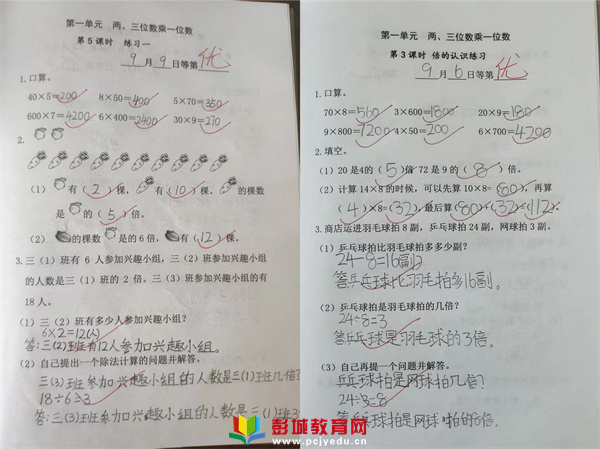 第一单元 两、三位数乘一位数
第5课时 练习一
9月9日等第优
1.口算。
40×5=200 8×50=400 5×70=350
600×7=4200 6×400=2400 30×9=270
2.
(1) 有(2)棵, 有(10)棵, 的棵数
是 的(5)倍。
(2) 的棵数是 的6倍, 有(12)棵。
3.三(1)班有6人参加兴趣小组,三(2)班参加兴趣小组
的人数是三(1)班的2倍。三(3)班参加兴趣小组的有
18人。
(1)三(2)班有多少人参加兴趣小组?
6×2=12(人)
答:三(2)班有12人参加兴趣小组。
(2)自己提出一个除法计算的问题并解答。
三(3)班参加兴趣小组的人数是三(1)班几倍?
18÷6=3
答:三(3)班参加兴趣小组的人数是三(1)班3
第一单元 两、三位数乘一位数
第3课时 倍的认识练习
9月6日等第优
1.口算。
70×8=560 3×600=1800 20×9=180
9×800=7200 4×50=200 6×700=4200
2.填空。
(1)20是4的(5)倍 72是9的(8)倍。
(2)计算14×8的时候,可以先算10×8=(80),再算
(4)×8=(32),最后算(80)+(32)=(112)。
3.商店运进羽毛球拍8副,乒乓球拍24副,网球拍3副。
(1)乒乓球拍比羽毛球拍多多少副?
24-8=16(副)
答:乒乓球拍比羽毛球拍多16副。
(2)乒乓球拍是羽毛球拍的几倍?
24÷8=3
答:乒乓球拍是羽毛球拍的3倍。
(3)自己再提一个问题并解答。
乒乓球拍是网球拍几倍?
24÷3=8
答:乒乓球拍是网球拍的8倍。
彭城教育网
www.pcjyedu.cn